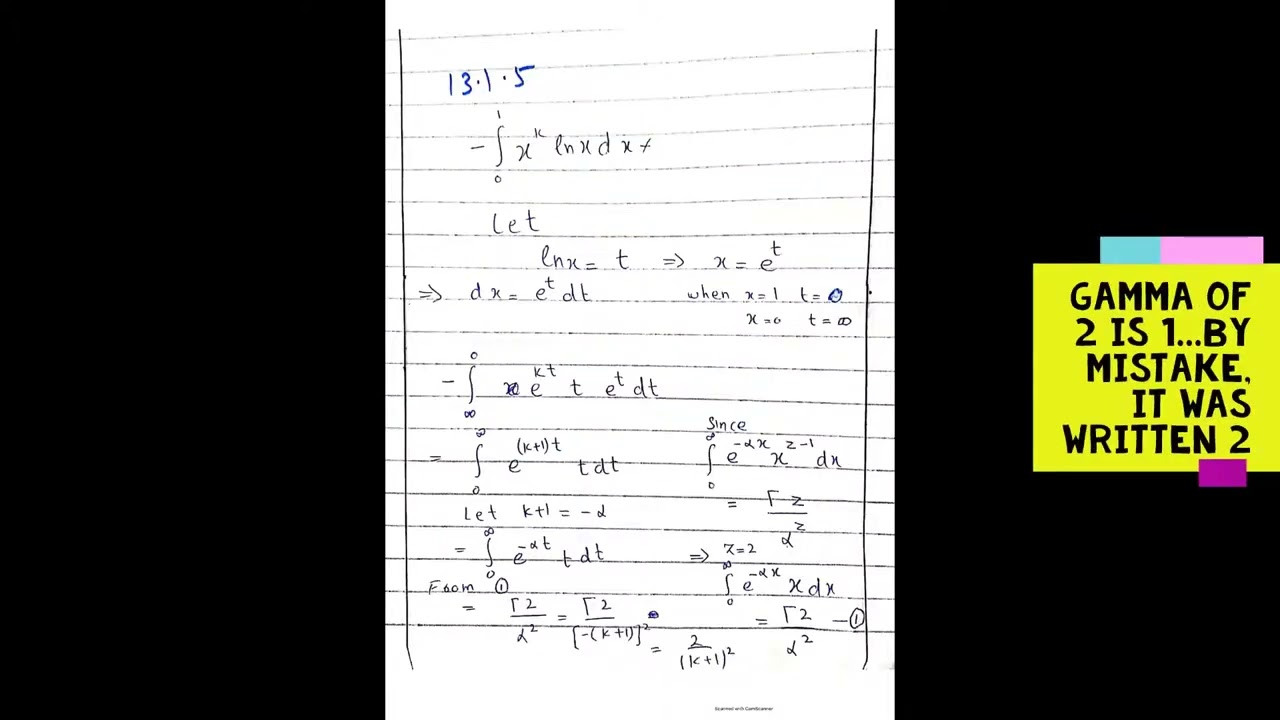 13.1.5
- ∫₀¹ x^k ln x d x +
Let
ln x = t ⇒ x = e^t
⇒ dx = e^t dt when x=1 t=0
x=0 t=∞
- ∫_∞^0 e^{kt} t e^t dt
Since
= ∫_0^∞ e^{(k+1)t} t dt ∫_0^∞ e^{-αx} x^{z-1} dx
= Γz / α^z
Let k+1 = -α
= ∫_0^∞ e^{-αt} t dt ⇒ z=2
∫_0^∞ e^{-αx} x dx
From ①
= Γ2 / α^2 = Γ2 / [-(k+1)]^2 = Γ2 / α^2 - ①
= 2 / (k+1)^2
Scanned with CamScanner
GAMMA OF
2 IS 1...BY
MISTAKE,
IT WAS
WRITTEN 2